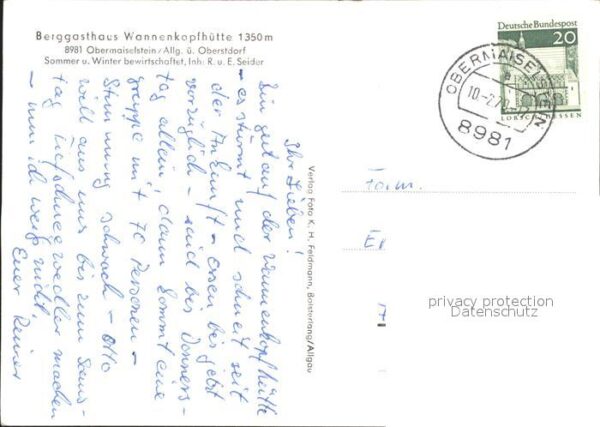 Berggasthaus Wannenkopfhütte 1350 m
8981 Obermaiselstein/Allg. ü. Oberstdorf
Sommer u. Winter bewirtschaftet, Inh. R. u. E. Seidor
Deutsche Bundespost
20
LORSCH HESSEN
OBERMAISELSTEIN
10.-2.72
8981
Ihr Lieben!
Bin gut auf der Wannenkopfhütte
- es stürmt und schneit seit
der Ankunft - essen bis jetzt
vorzüglich - sind bis Donners-
tag allein, dann kommt eine
Gruppe mit 70 Personen -
Stimmung schwach - Otto
will aus uns bis zum Sams-
tag Tiefschneewedler machen
- nun ich weiß nicht,
Euer Reiner
Verlag Foto K. H. Feldmann, Bolsterlang/Allgäu
Fam.
privacy protection
Datenschutz